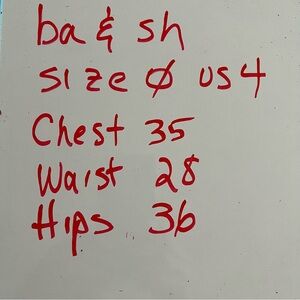 ba & sh
size Ø US4
Chest 35
Waist 28
Hips 36